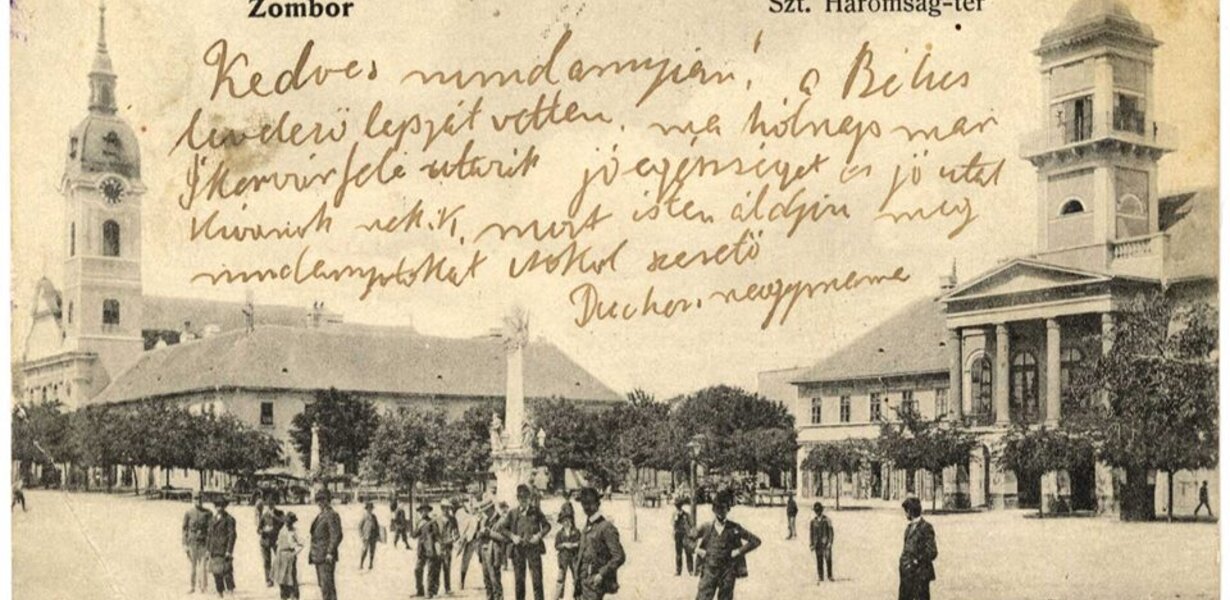 Zombor
Szt. Háromság-tér
Kedves mindannyian! a Békes
levelező lapját vettem, ma holnap mar
Ikervár felé utazik jó egénséget es jó utat
kivanok nekik, most isten áldjon meg
mindannyitokat sokol szerető
nagymama